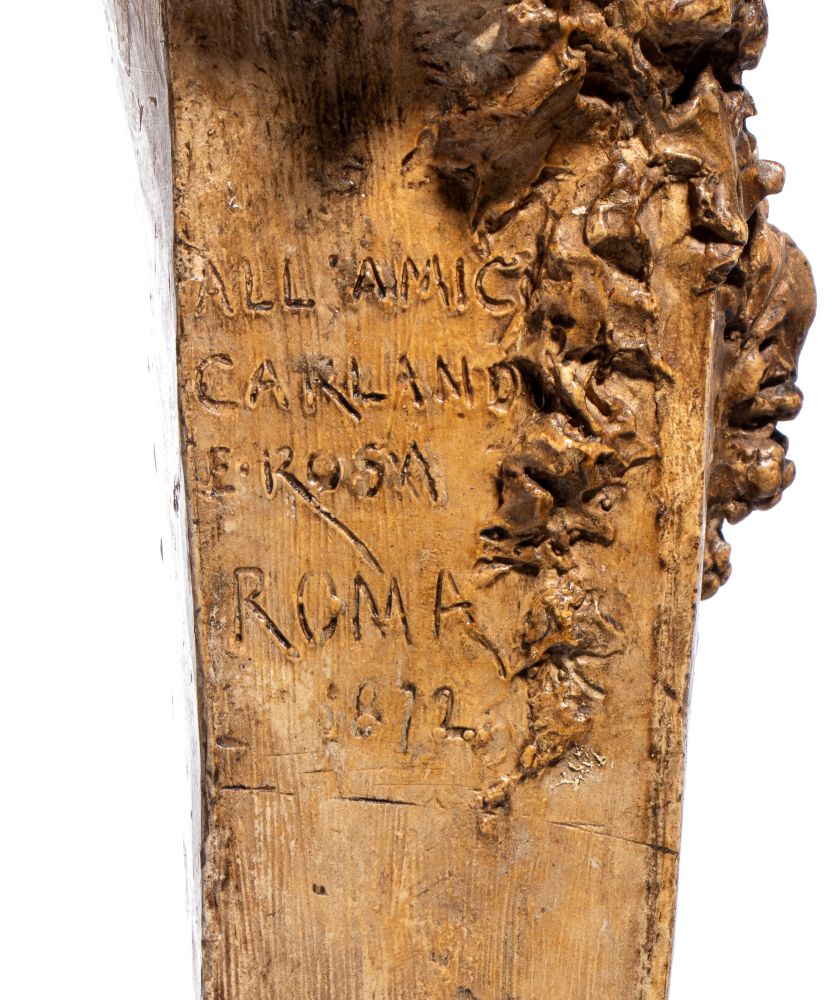 ALL'AMIC
CARLAND
E·ROSA
ROMA
1872.